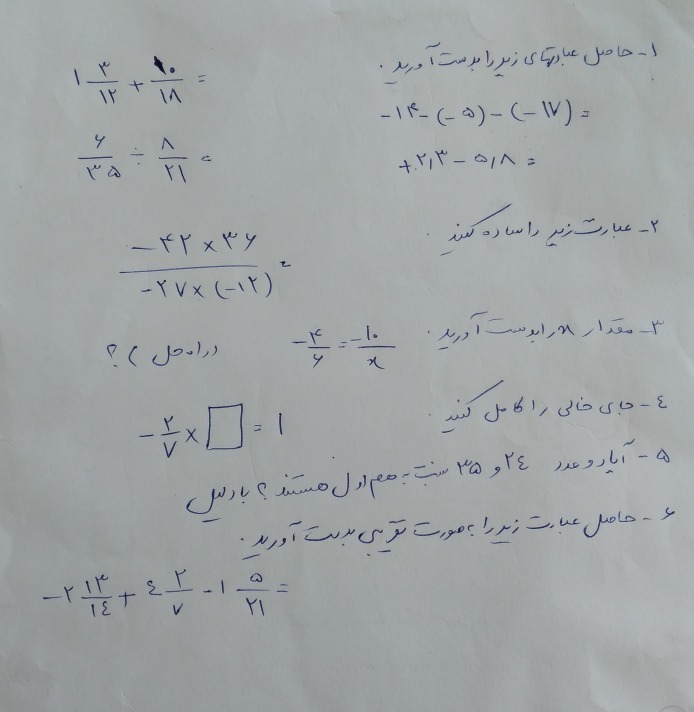 ۱- حاصل عبارتهای زیر را بدست آورید.
۱ ۳/۱۲ + ۱۰/۱۸ =
-۱۴-(-۵)-(-۱۷) =
۶/۳۵ ÷ ۸/۲۱ =
+۲٫۳ - ۵٫۸ =
۲- عبارت زیر را ساده کنید.
-۴۲ × ۳۶ / -۲۷ × (-۱۲) =
۳- مقدار x را بدست آورید. -۴/۶ = -۱۰/x (راه حل)؟
٤- جای خالی را کامل کنید.
-۲/۷ × □ = ۱
۵- آیا دو عدد ۲٤ و ۳۵ نسبت به هم اول هستند؟ با دلیل
۶- حاصل عبارت زیر را به صورت تقریبی بدست آورید.
-۲ ۱۳/۱٤ + ٤ ۲/۷ - ۱ ۵/۲۱ =